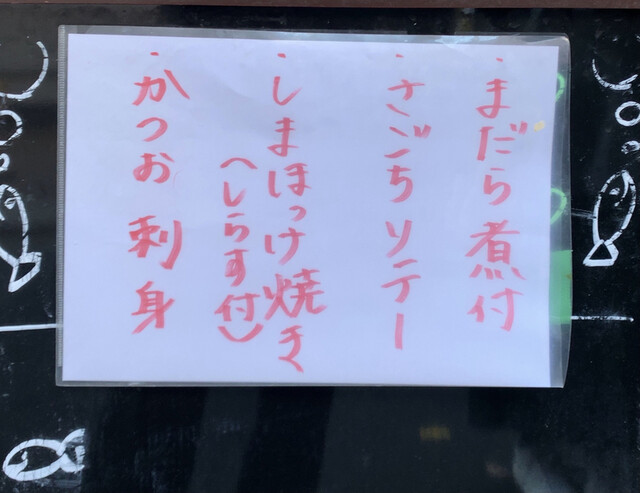 ・まだら煮付
・さごちソテー
・しまほっけ焼き
(しらす付)
・かつお刺身